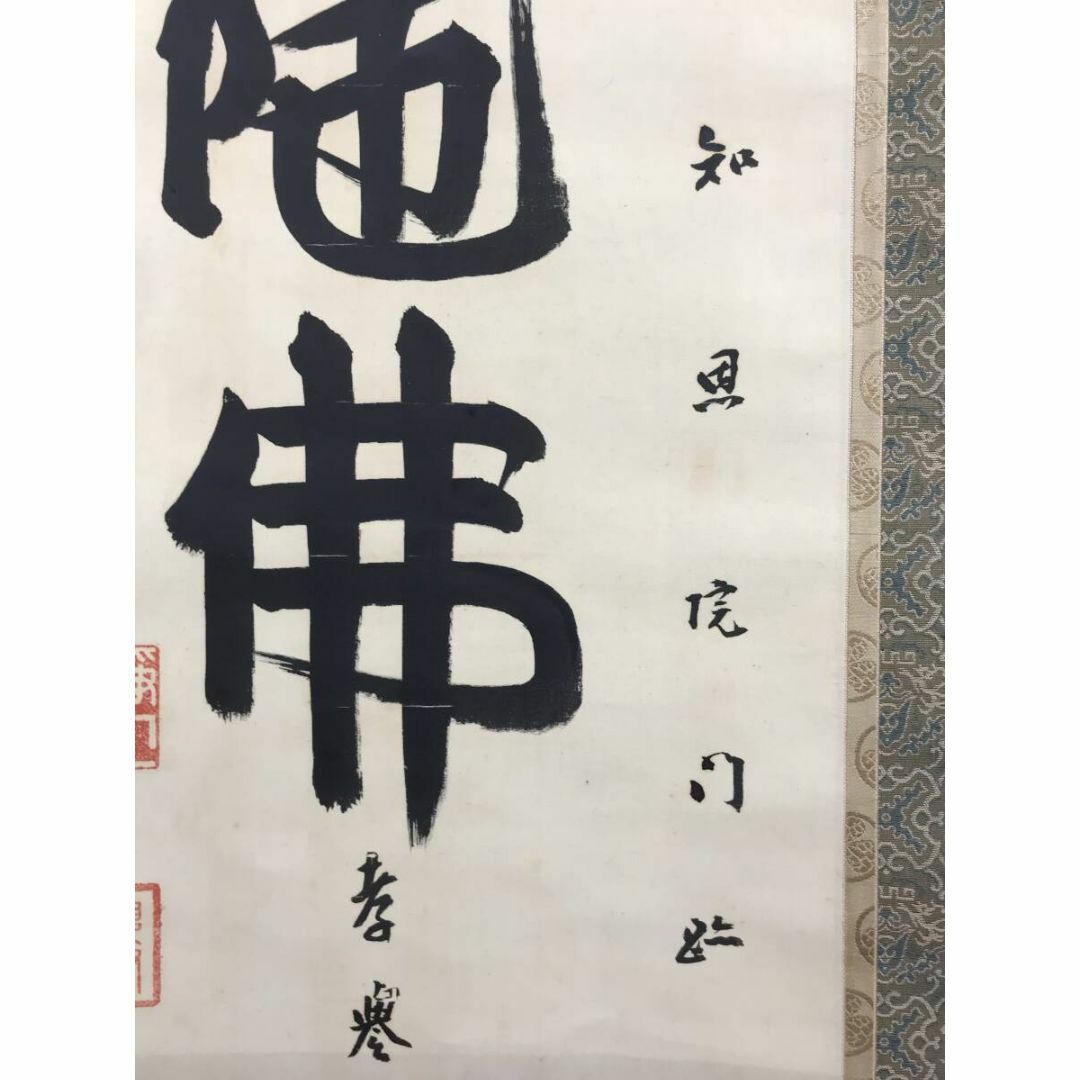 知恩院門跡
陁佛
孝譽